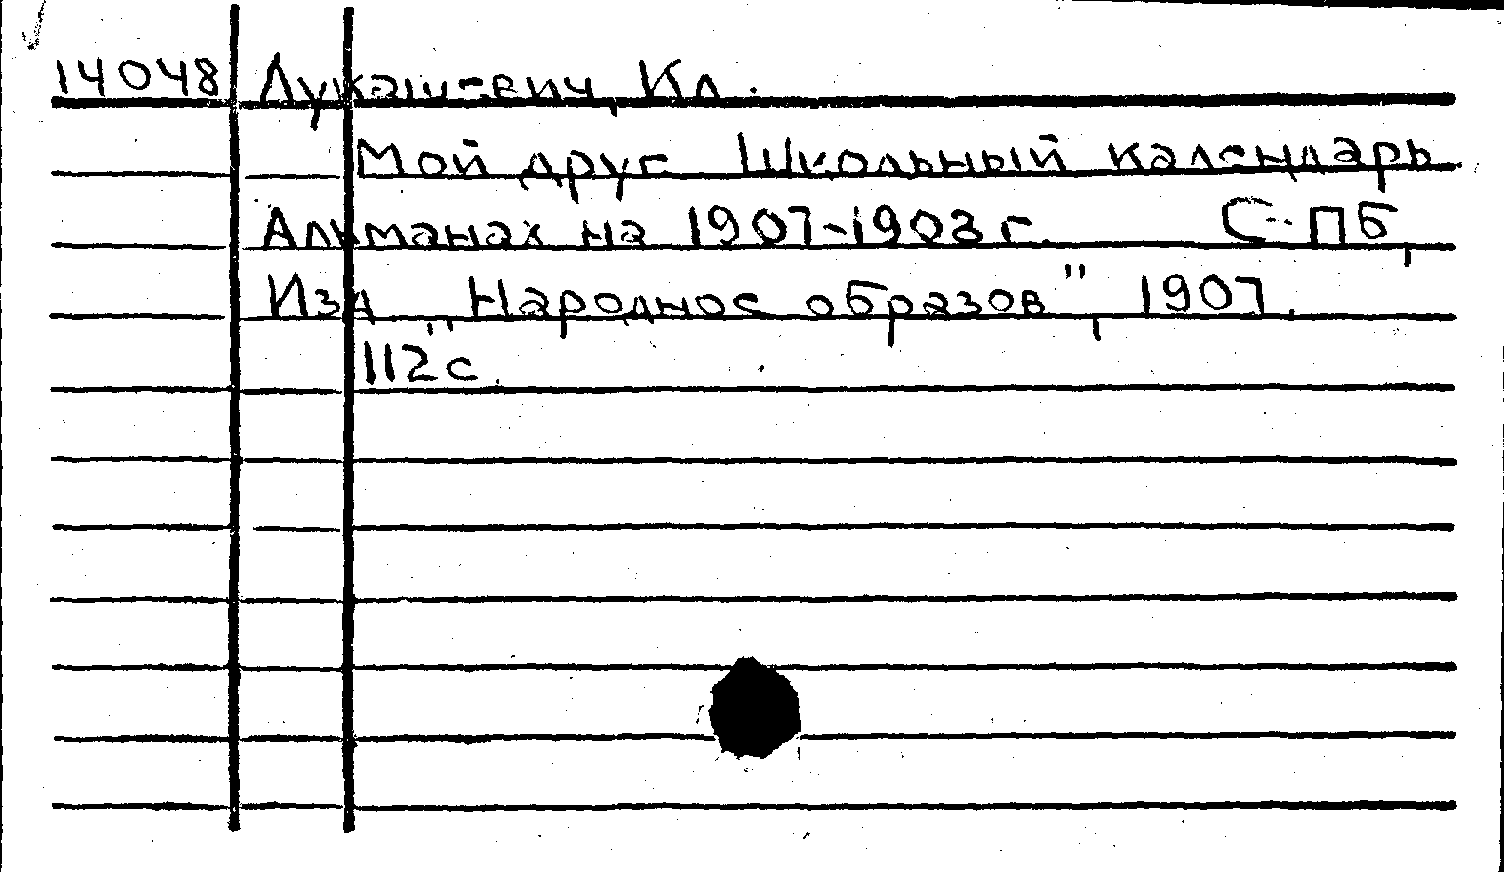 14048 Лукашевич, Кл.
Мой друг. Школьный календарь
Альманах на 1907-1908 г. С-ПБ,
Изд „Народное образов", 1907.
112с.